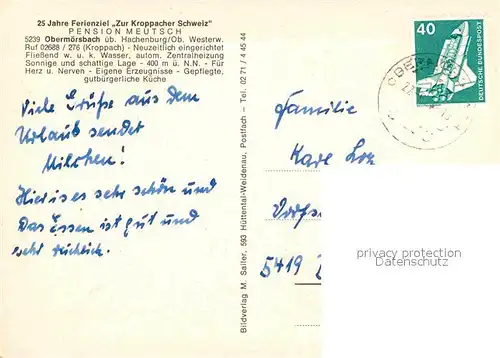 25 Jahre Ferienziel „Zur Kroppacher Schweiz"
PENSION MEUTSCH
5239 Obermörsbach üb. Hachenburg/Ob. Westerw.
Ruf 02688 / 276 (Kroppach) - Neuzeitlich eingerichtet
Fließend w. u. k. Wasser, autom. Zentralheizung
Sonnige und schattige Lage - 400 m ü. N.N. - Für
Herz u. Nerven - Eigene Erzeugnisse - Gepflegte,
gutbürgerliche Küche
Viele Grüße aus dem
Urlaub sendet
Milchen!
Hier ist es sehr schön und
Das Essen ist gut und
sehr reichlich.
Bildverlag M. Sailer, 593 Hüttental-Weidenau, Postfach - Tel. 02 71 / 4 45 44
40
DEUTSCHE BUNDESPOST
Familie
Karl
5419
privacy protection
watermark